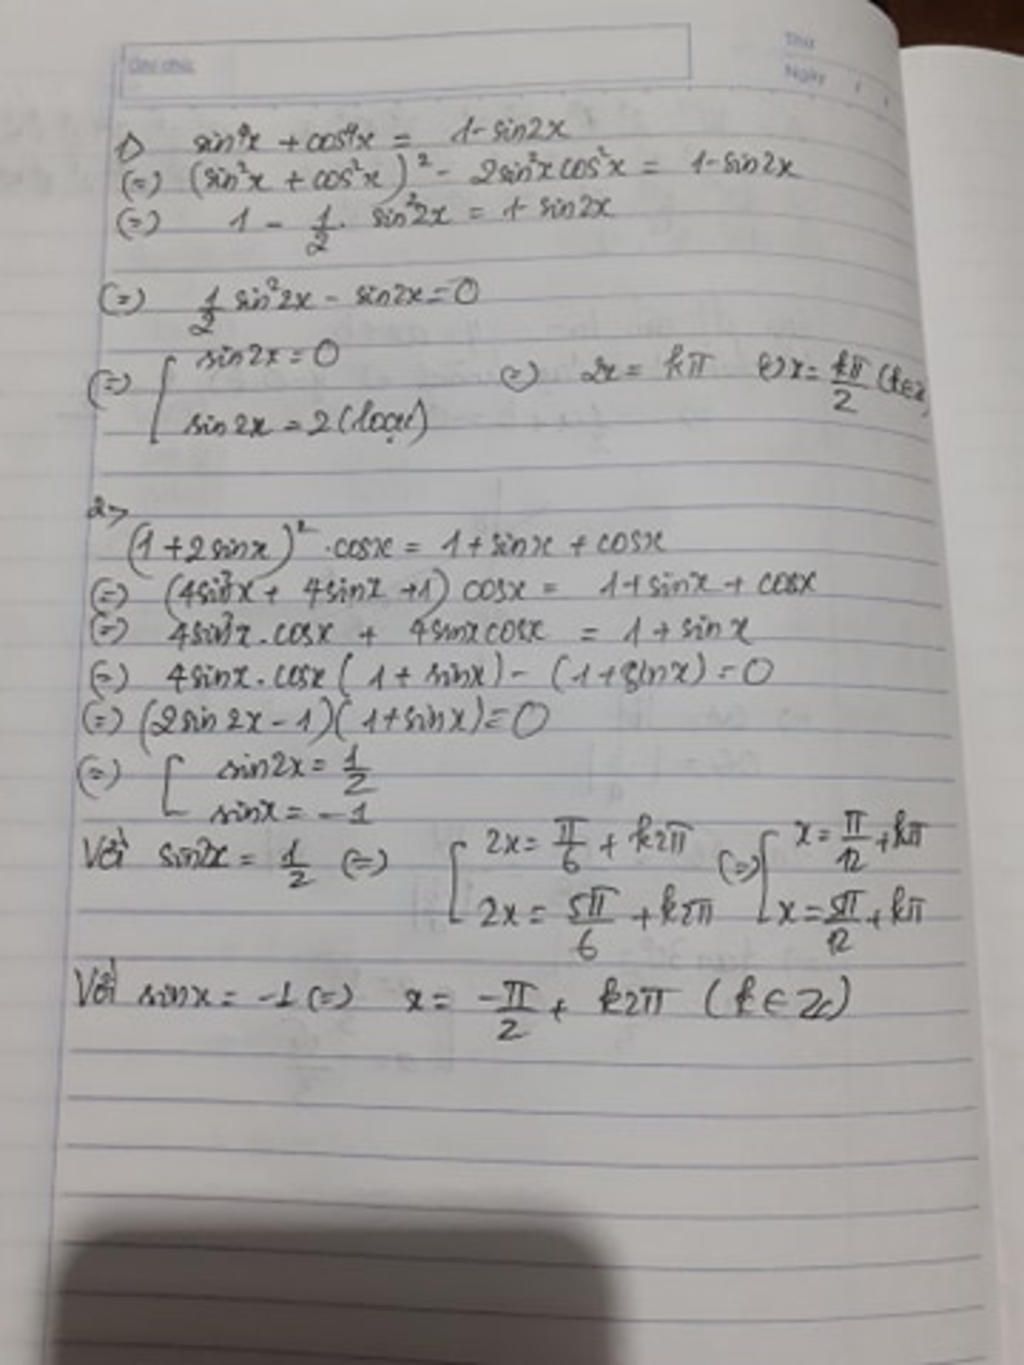 Ghi chú:
Thứ
Ngày / /
1) sin⁴x + cos⁴x = 1-sin2x
(=) (sin²x + cos²x)² - 2sin²x cos²x = 1-sin2x
(=) 1 - 1/2 . sin²2x = 1- sin2x
(=) 1/2 sin²2x - sin2x = 0
(=) [ sin2x = 0 (=) 2x = kπ (=) x = kπ/2 (k∈Z)
sin2x = 2 (loại)
2)
(1+2sinx)² .cosx = 1+sinx + cosx
(=) (4sin²x + 4sinx +1) cosx = 1+sinx + cosx
(=) 4sin²x.cosx + 4sinxcosx = 1 + sinx
(=) 4sinx.cosx ( 1+ sinx) - (1+sinx) = 0
(=) (2sin2x-1)(1+sinx) = 0
(=) [ sin2x = 1/2
sinx = -1
Với sin2x = 1/2 (=) [ 2x = π/6 + k2π (=) [ x = π/12 + kπ
2x = 5π/6 + k2π x = 5π/12 + kπ
Với sinx = -1 (=) x = -π/2 + k2π (k ∈ Z)